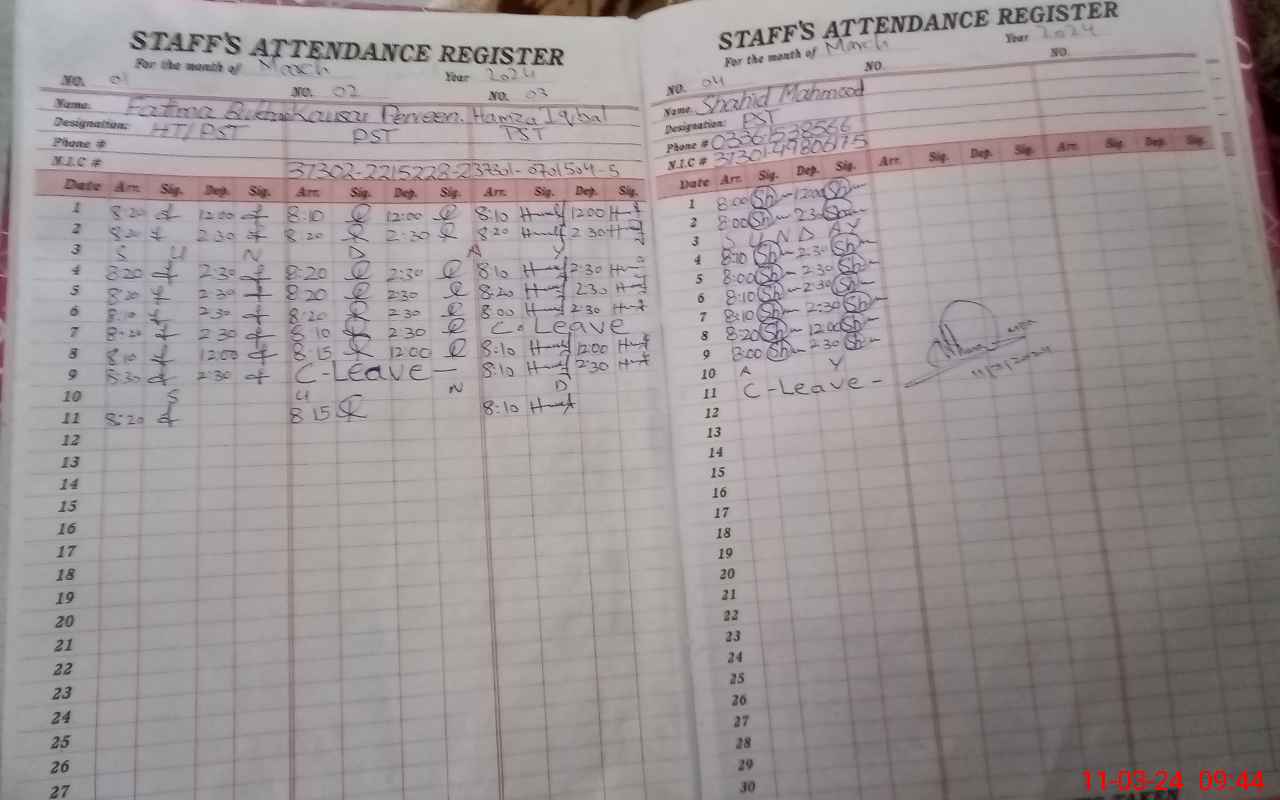 STAFF'S ATTENDANCE REGISTER
For the month of March Year 2024
NO. 01 NO. 02 NO. 03
Name. Fatima Bukhari Kausar Perveen. Hamza Iqbal
Designation: HT/PST PST PST
Phone #
N.I.C # 37302-2215228-2 37301-0701504-5
Date Arr. Sig. Dep. Sig. Arr. Sig. Dep. Sig. Arr. Sig. Dep. Sig.
1 8:20 12:00 8:10 12:00 8:10 12:00
2 8:20 2:30 8:20 2:30 8:20 2:30
3 S U N D A Y
4 8:20 2:30 8:20 2:30 8:10 2:30
5 8:20 2:30 8:20 2:30 8:20 2:30
6 8:10 2:30 8:20 2:30 8:00 2:30
7 8:20 2:30 8:10 2:30 C. Leave
8 8:10 12:00 8:15 12:00 8:10 12:00
9 8:30 2:30 C-Leave- 8:10 2:30
10 S U N D
11 8:20 8 15 8:10
12
13
14
15
16
17
18
19
20
21
22
23
24
25
26
27
STAFF'S ATTENDANCE REGISTER
For the month of March Year 2024
NO. 04 NO. NO.
Name. Shahid Mahmood
Designation: PST
Phone #
N.I.C # 37301-4980617-5
Date Arr. Sig. Dep. Sig. Arr. Sig. Dep. Sig. Arr. Sig. Dep. Sig.
1 8:00 Sh 12:00 Sh
2 8:00 Sh 2:30 Sh
3 S U N D A Y
4 8:10 Sh 2:30 Sh
5 8:00 Sh 2:30 Sh
6 8:10 Sh 2:30 Sh
7 8:10 Sh 2:30 Sh
8 8:20 Sh 12:00 Sh
9 8:00 Sh 2:30 Sh
10 A Y
11 C-Leave-
11/3/2024
12
13
14
15
16
17
18
19
20
21
22
23
24
25
26
27
28
29
30
TAKEN
11-03-24 09:44